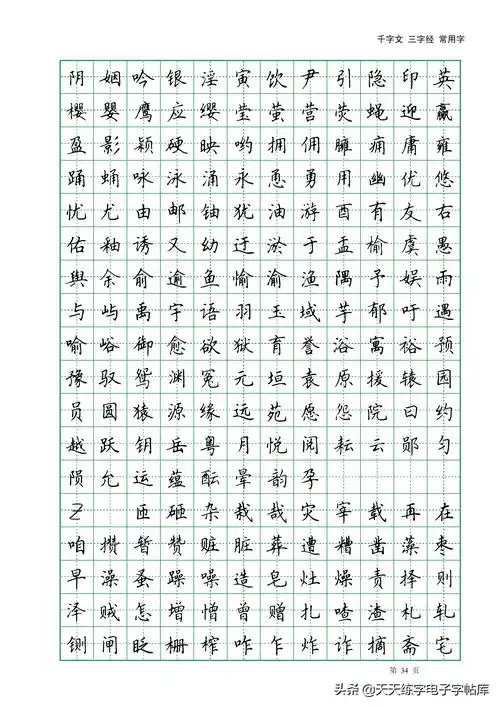 千字文 三字经 常用字
阴姻吟银淫寅饮尹引隐印英
樱婴鹰应缨莹萤营荧蝇迎赢
盈影颖硬映哟拥佣臃痈庸雍
踊蛹咏泳涌永恿勇用幽优悠
忧尤由邮铀犹油游酉有友右
佑釉诱又幼迂淤于盂榆虞愚
舆余俞逾鱼愉渝渔隅予娱雨
与屿禹宇语羽玉域芋郁吁遇
喻峪御愈欲狱育誉浴寓裕预
豫驭鸳渊冤元垣袁原援辕园
员圆猿源缘远苑愿怨院曰约
越跃钥岳粤月悦阅耘云郧匀
陨允运蕴酝晕韵孕
Z 匝砸杂栽哉灾宰载再在
咱攒暂赞赃脏葬遭糟凿藻枣
早澡蚤躁噪造皂灶燥责择则
泽贼怎增憎曾赠扎喳渣札轧
铡闸眨栅榨咋乍炸诈摘斋宅
第 34 页
头条 @天天练字电子字帖库